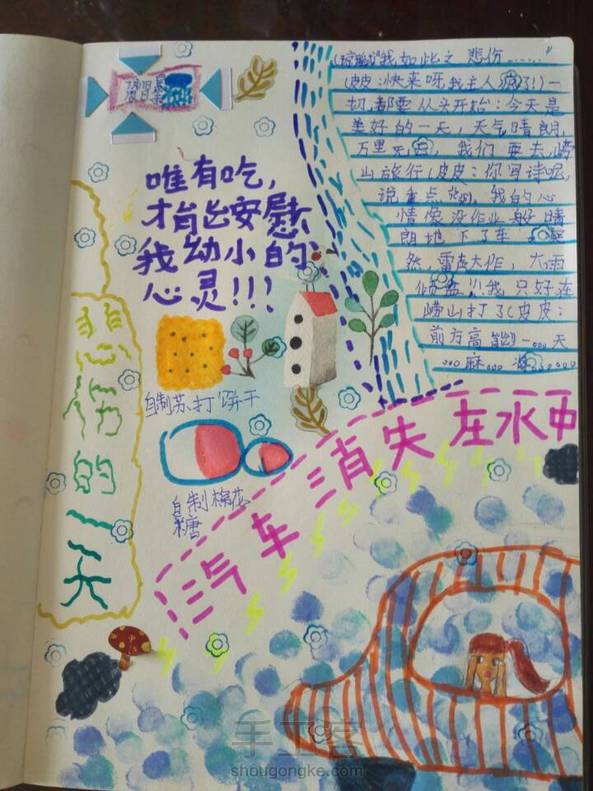 唯有吃，
才能安慰
我幼小的
心灵！！！
悲伤的一天
自制苏打饼干
自制棉花
糖
汽车消失在水中
我如此之悲伤……"
(皮皮:快来呀,我主人疯了!)一
切都要从头开始:今天是
美好的一天,天气晴朗,
万里无云,我们要去崂
山旅行(皮皮:你写诗呢,
说重点),我的心
情像没作业一般晴
朗地下了车
然,雷声大作,大雨
倾盆!!我只好在
崂山打了(皮皮:
前方高能)一……天
……麻……将……
手工客
shougongke.com